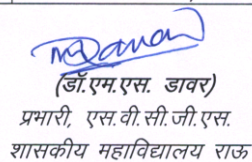 (डॉ.एम.एस. डावर)
प्रभारी, एस.वी.सी.जी.एस.
शासकीय महाविद्यालय राऊ